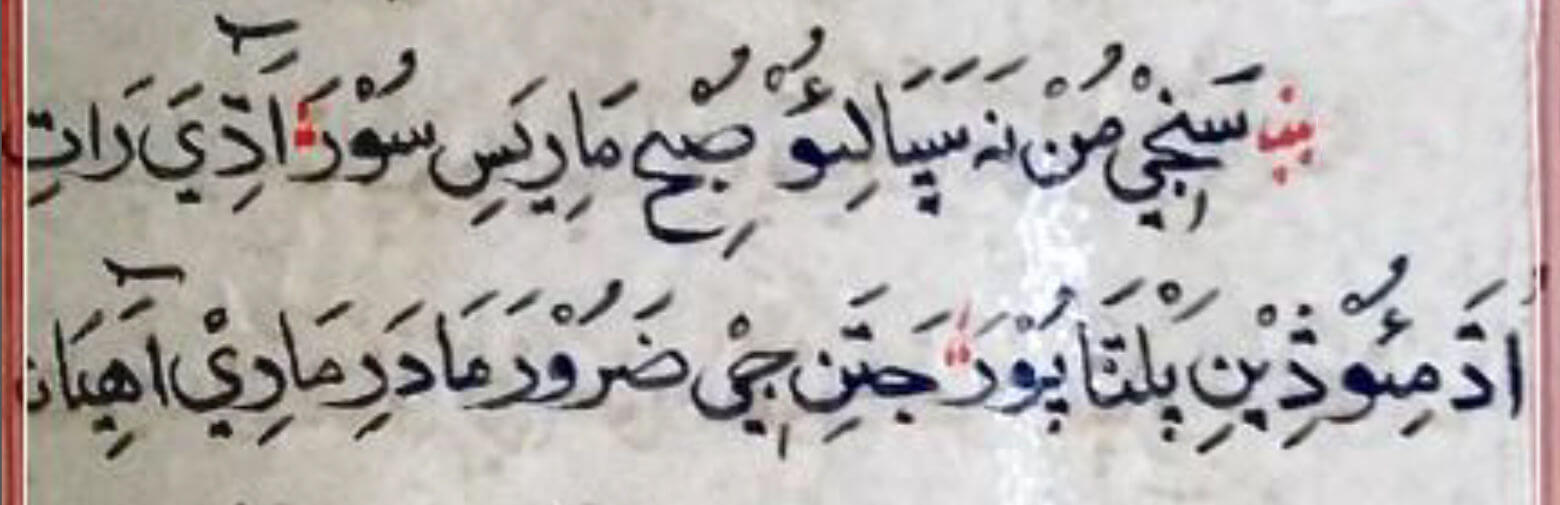 بيت سَنجِيْ مُنْ نَہ سَپَالِئُو صُبْحِ مَارِيَسِ سُوْرَ آڌِيَ رَاتِ
اَڌَ مِئُوْ ڏيْنِ پَلْتَا پُوْرَ جَتَنِ جِيْ ضَرُوْرَ مَادَرِ مَارِيْ آهِيَان